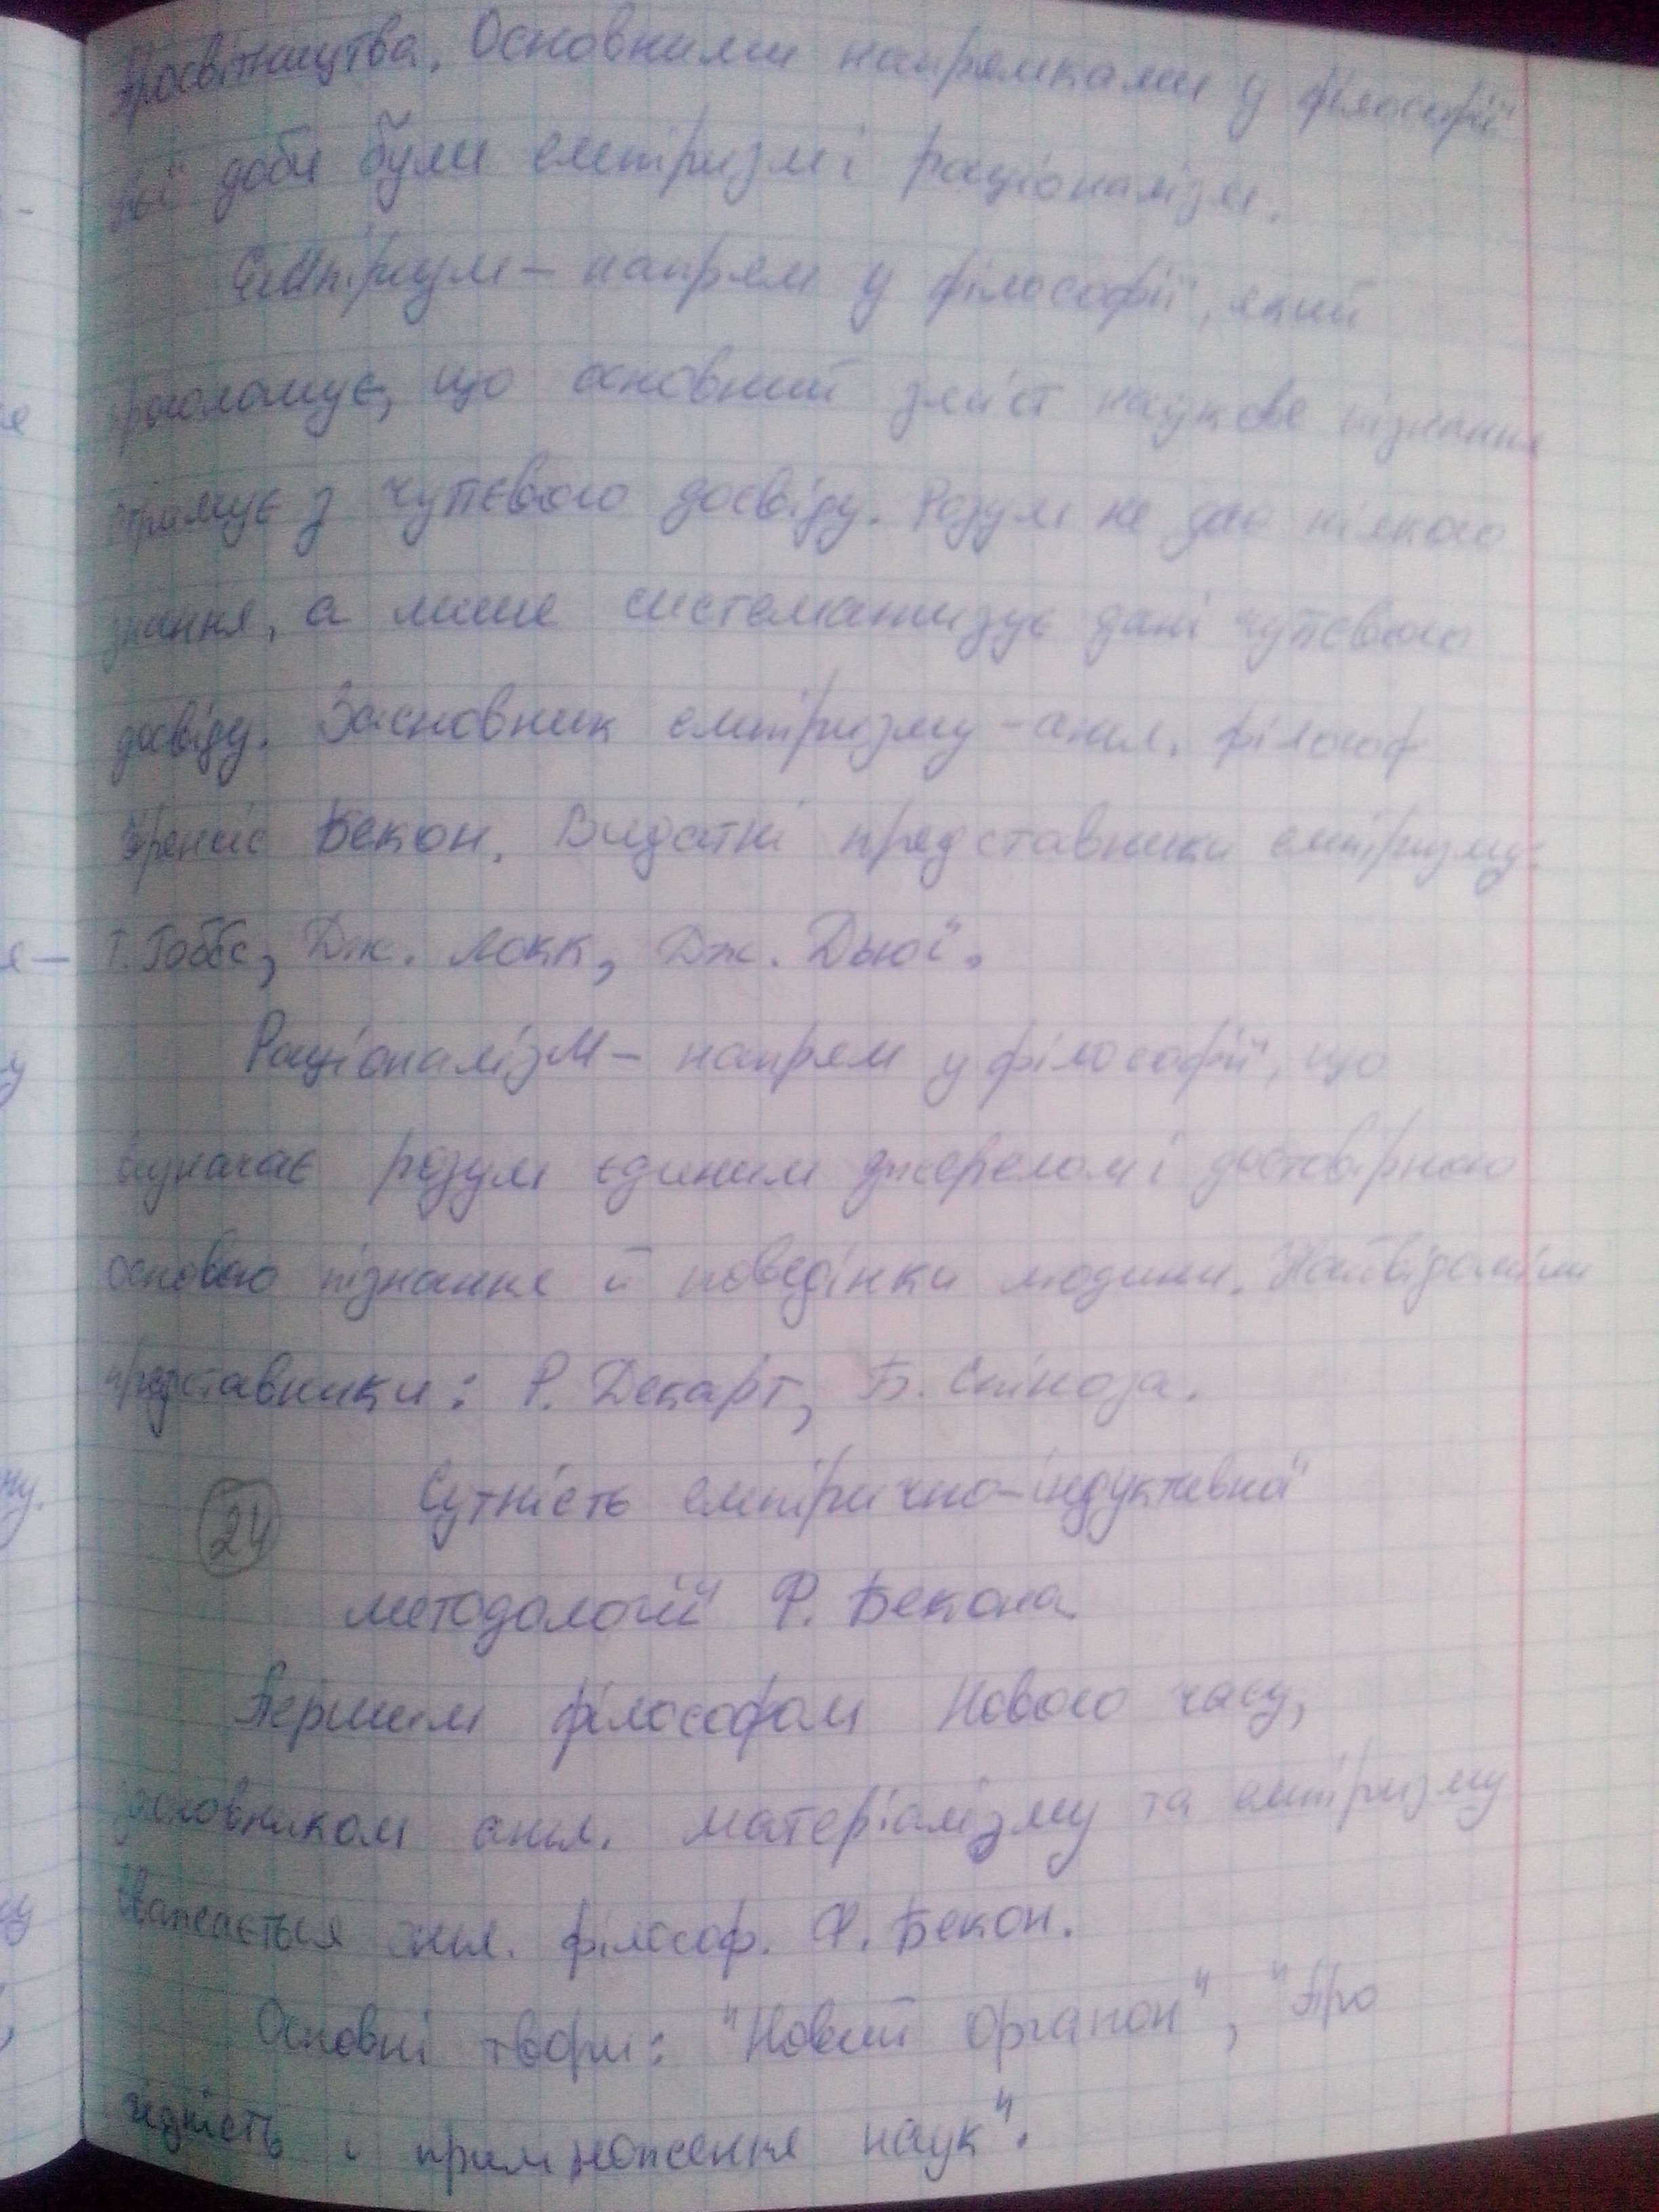 Просвітництва. Основними напрямками у філософії
цієї доби були емпіризм і раціоналізм.
Емпіризм – напрям у філософії, який
проголошує, що основний зміст наукове пізнання
отримує з чуттєвого досвіду. Розум не дає ніякого
знання, а лише систематизує дані чуттєвого
досвіду. Засновник емпіризму – англ. філософ
Френсіс Бекон. Видатні представники емпіризму:
Т. Гоббс, Дж. Локк, Дж. Дьюї.
Раціоналізм – напрям у філософії, що
визначає розум єдиним джерелом і достовірною
основою пізнання й поведінки людини. Найвідоміші
представники: Р. Декарт, Б. Спіноза.
24 Сутність емпірично-індуктивної
методології Ф. Бекона
Першим філософом Нового часу,
засновником англ. матеріалізму та емпіризму
вважається англ. філософ. Ф. Бекон.
Основні твори: "Новий Органон", "Про
гідність і примноження наук".